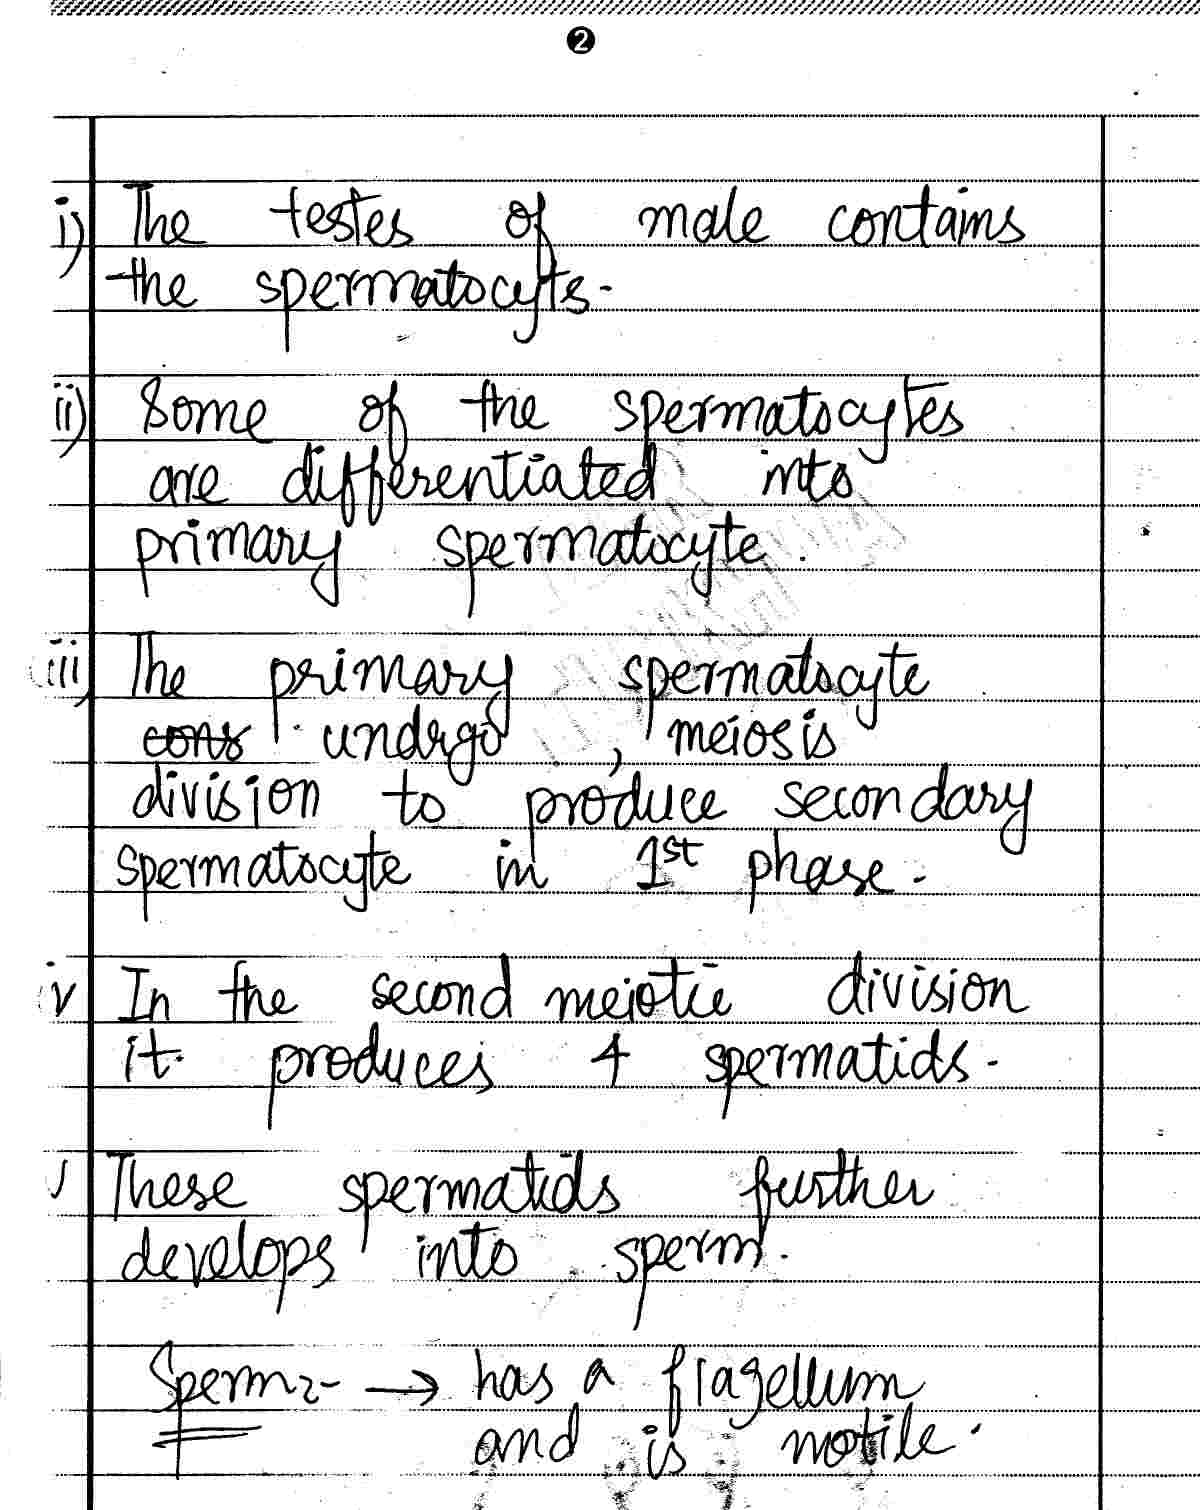 2
i) The testes of male contains
the spermatocyts.
ii) Some of the spermatocytes
are differentiated into
primary spermatocyte.
iii) The primary spermatocyte
cons undrgo, meiosis
division to produce secondary
spermatocyte in 1st phase.
iv In the second meiotic division
it produces 4 spermatids.
v These spermatids further
develops into sperm.
Sperm:- → has a flagellum
and is motile.